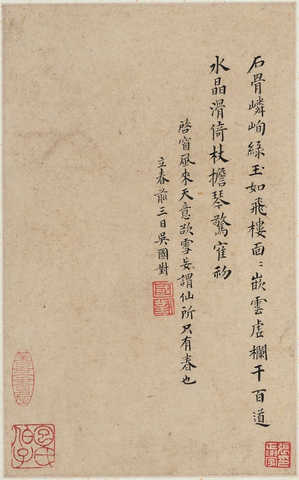 石骨嶙峋綠玉如飛樓面〻嵌雲虛欄干百道
水晶滑倚杖擔琴驚寉初
啓窗風來天意欲雪妄謂仙所只有春也
立春前三日吳國對